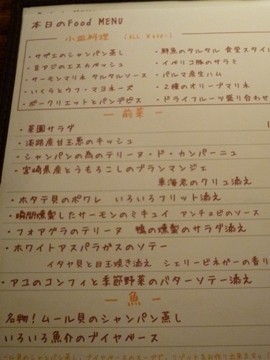 本日のFood MENU
小皿料理 (ALL
・サザエのシャンパン蒸し
・豆アジのエスカベッシュ
・サーモンマリネ タルタルソース
・いくらとウフ・マヨネーズ
・ポークリエットとパンデピス
・鮮魚のタルタル 食堂スタイ
・イベリコ豚のサラミ
・パルマ産生ハム
・2種のオリーブマリネ
・ドライフルーツ盛り合わせ
ー 前菜 ー
・菜園サラダ
・淡路産甘玉葱のキッシュ
・シャンパンの為のテリーヌ・ド・カンパーニュ
・宮崎県産とうもろこしのブランマンジェ
東海老のクリュ添え
・ホタテ貝のポワレ いろいろフリット添え
・瞬間燻製したサーモンのミキュイ アンチョビのソース
・フォアグラのテリーヌ 鴨の燻製のサラダ添え
・ホワイトアスパラガスのソテー
イタヤ貝と目玉焼き添え シェリービネガーの香り
・アユのコンフィと季節野菜のバターソテー添え
ー 魚 ー
名物!ムール貝のシャンパン蒸し
いろいろ魚介のブイヤベース